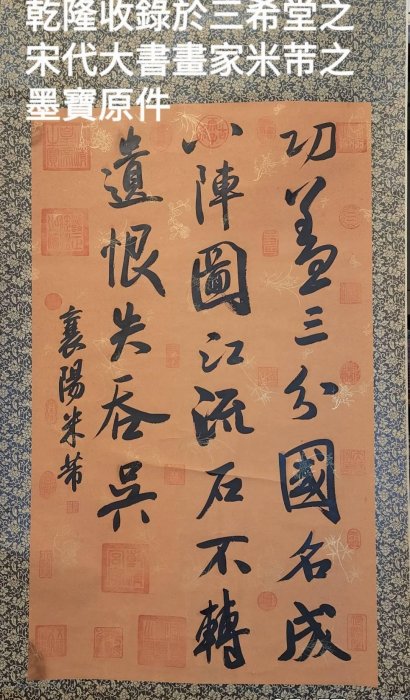 乾隆收錄於三希堂之
宋代大書畫家米芾之
墨寶原件
功蓋三分國名成
八陣圖江流石不轉
遺恨失吞吳
襄陽米芾